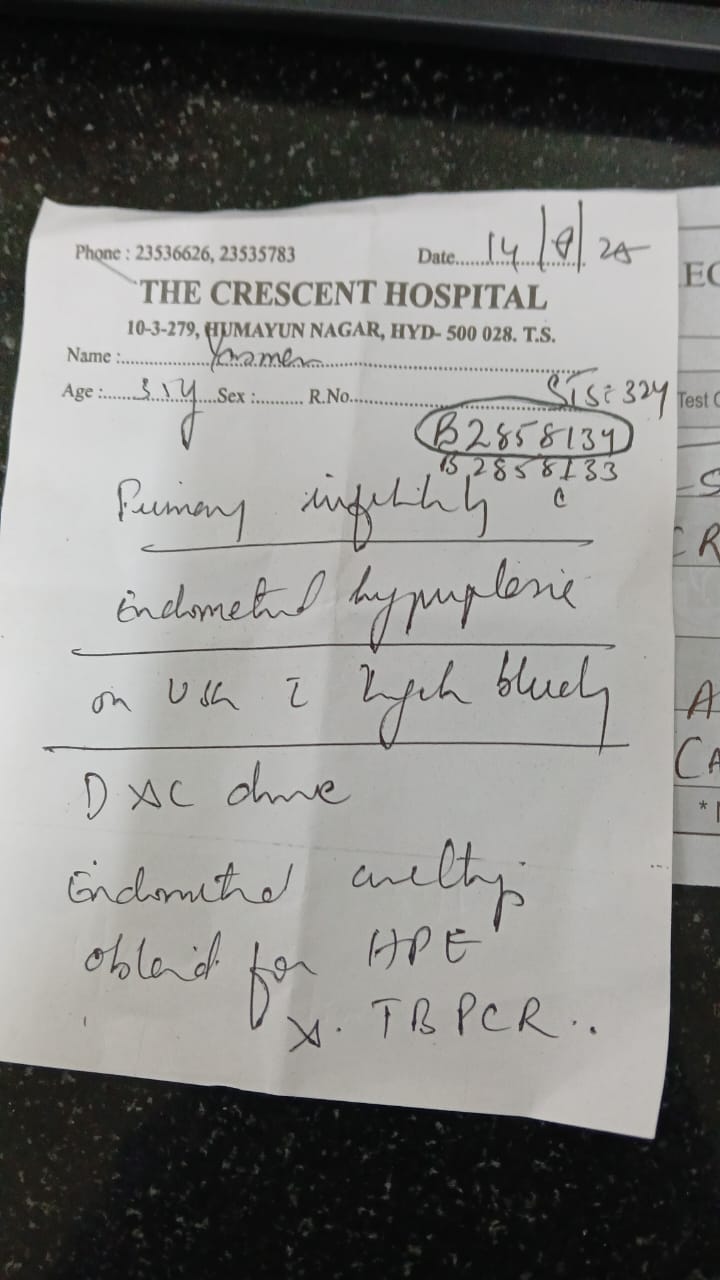 Phone : 23536626, 23535783 Date.....14/8/25
THE CRESCENT HOSPITAL
10-3-279, HUMAYUN NAGAR, HYD- 500 028. T.S.
Name :.....
Age :.....Sex :..... R.No.....
B2858134
B2858133
C
Primary infertility
Endometrial hyperplasia
on USG c bleeding
D & C done
Endometrial curettings
obtained for HPE
&. TB PCR..
EC
Test C
CR
A
CA
*